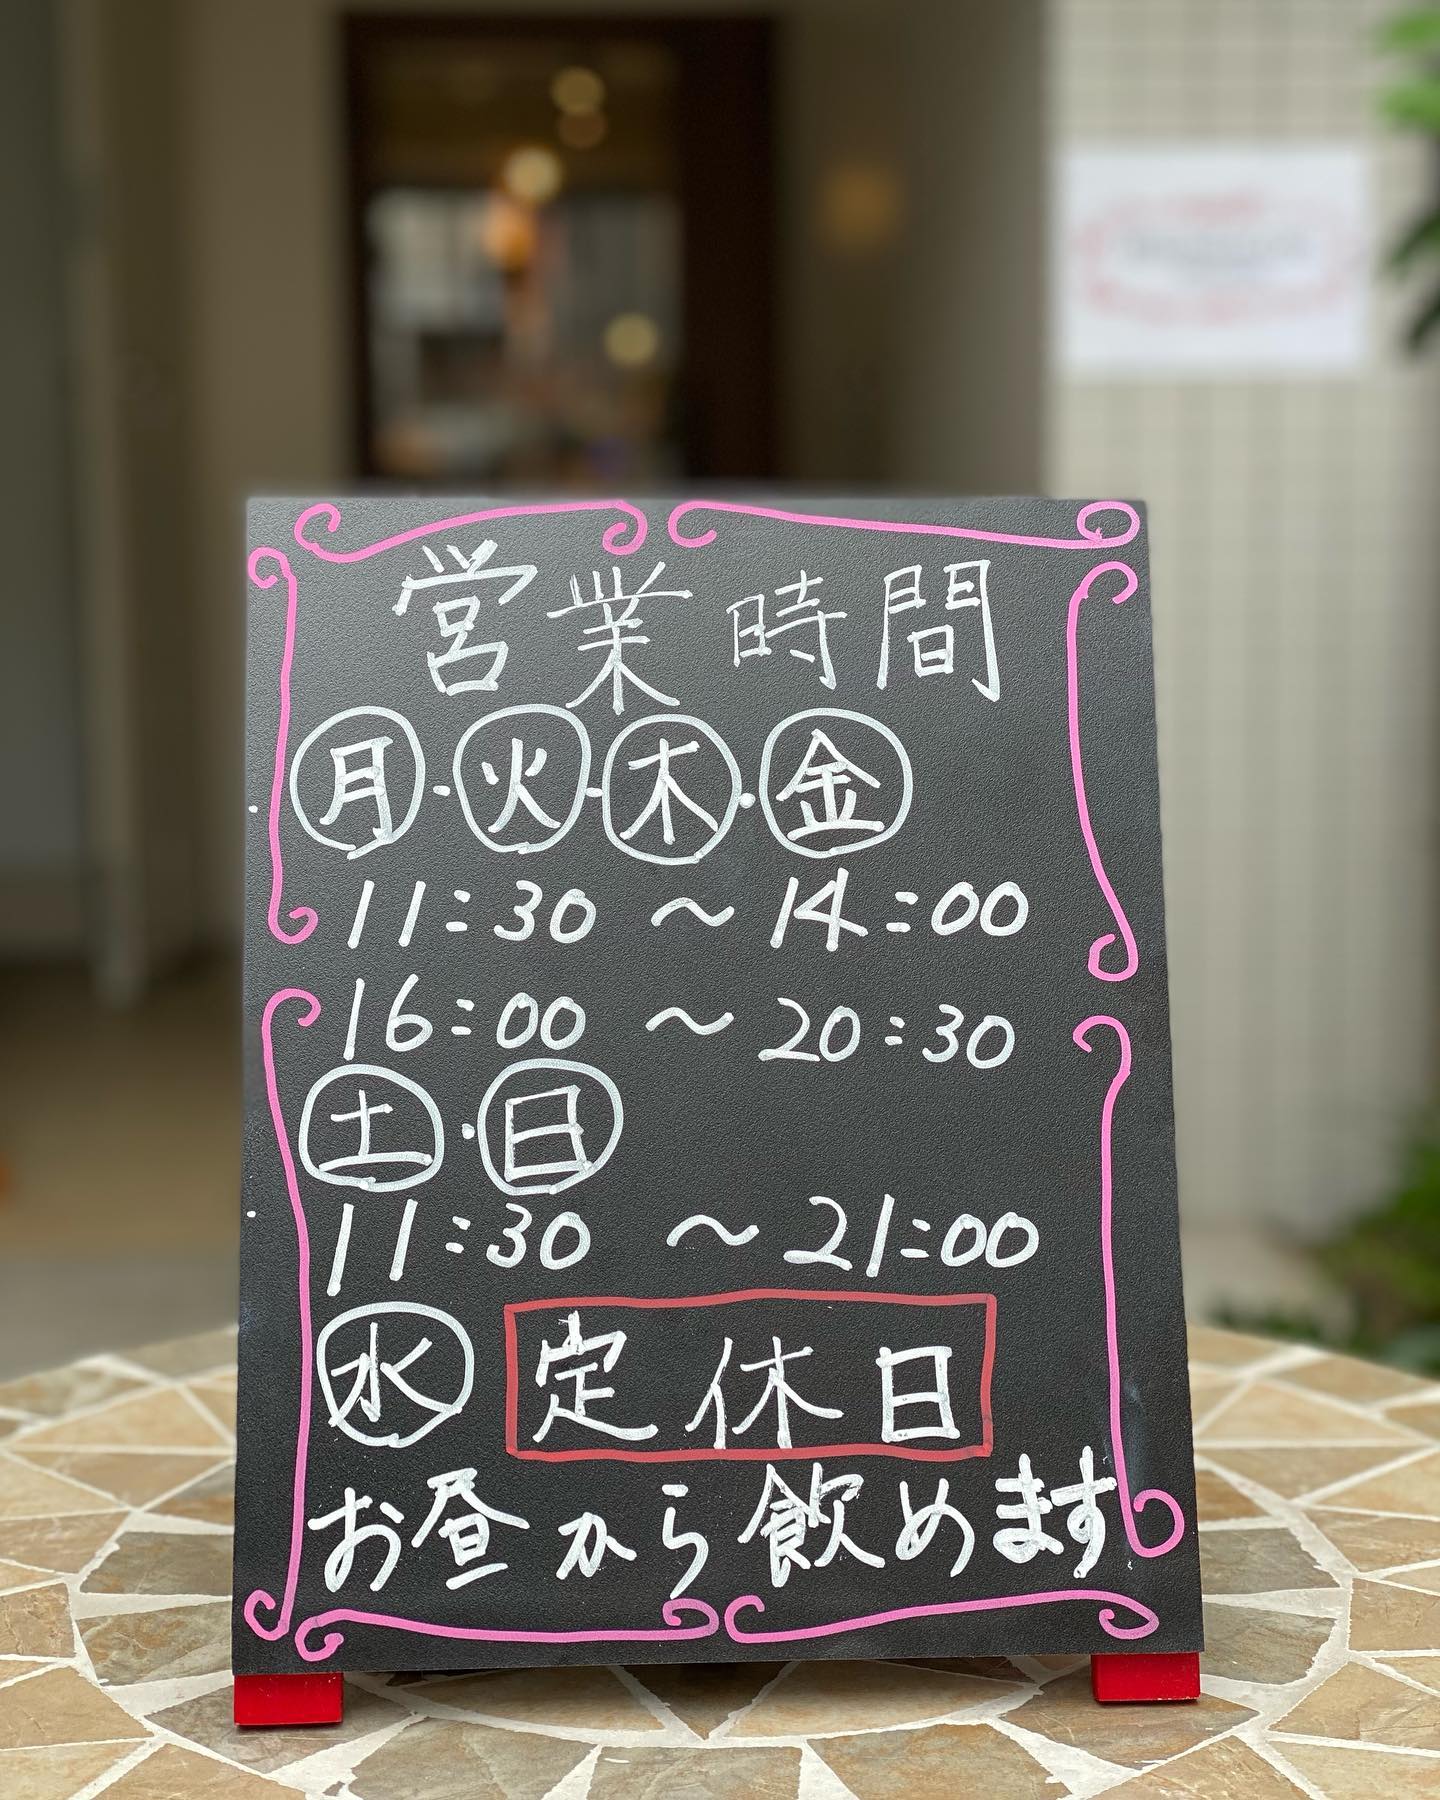 営業時間
月・火・木・金
11:30 〜 14:00
16:00 〜 20:30
土・日
11:30 〜 21:00
水 定休日
お昼から飲めます